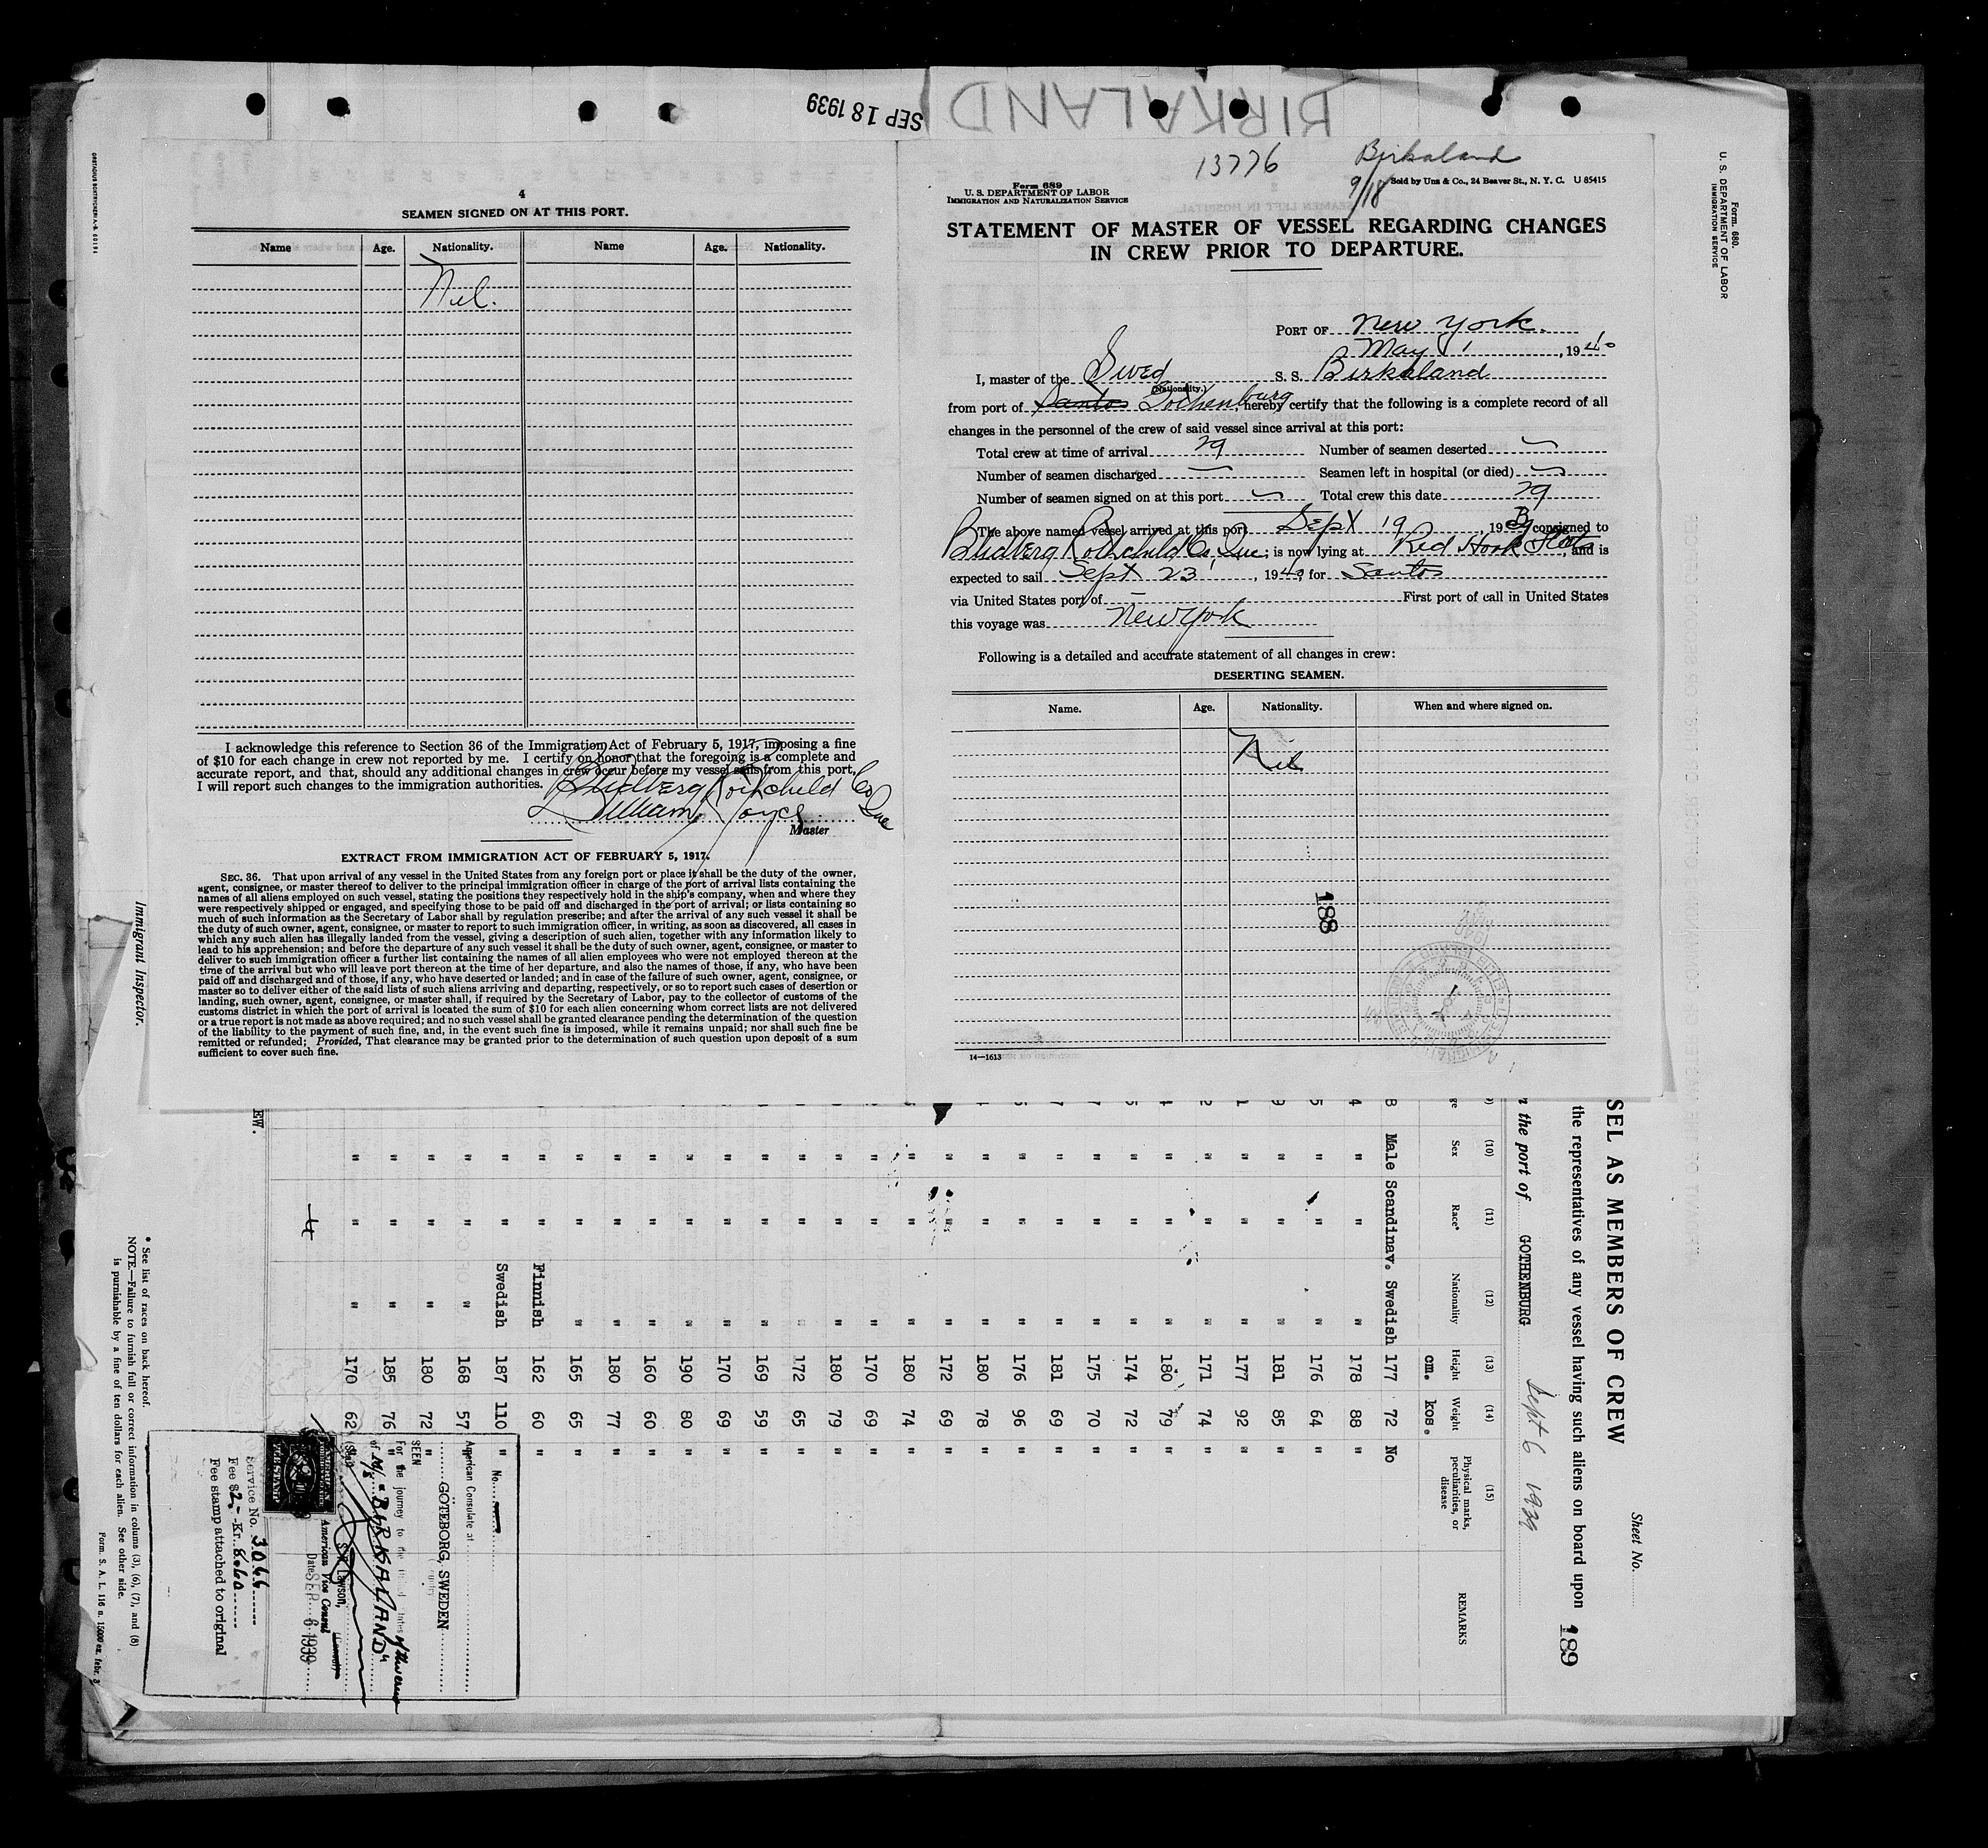 SEP 18 1939
BIRKALAND
4
SEAMEN SIGNED ON AT THIS PORT.
Name Age. Nationality. Name Age. Nationality.
Nil.
I acknowledge this reference to Section 36 of the Immigration Act of February 5, 1917, imposing a fine
of $10 for each change in crew not reported by me. I certify on honor that the foregoing is a complete and
accurate report, and that, should any additional changes in crew occur before my vessel sails from this port,
I will report such changes to the immigration authorities.
Rothchild Co Inc
William Joyce
Master
EXTRACT FROM IMMIGRATION ACT OF FEBRUARY 5, 1917.
SEC. 36. That upon arrival of any vessel in the United States from any foreign port or place it shall be the duty of the owner,
agent, consignee, or master thereof to deliver to the principal immigration officer in charge of the port of arrival lists containing the
names of all aliens employed on such vessel, stating the positions they respectively hold in the ship's company, when and where they
were respectively shipped or engaged, and specifying those to be paid off and discharged in the port of arrival; or lists containing so
much of such information as the Secretary of Labor shall by regulation prescribe; and after the arrival of any such vessel it shall be
the duty of such owner, agent, consignee, or master to report to such immigration officer, in writing, as soon as discovered, all cases in
which any such alien has illegally landed from the vessel, giving a description of such alien, together with any information likely to
lead to his apprehension; and before the departure of any such vessel it shall be the duty of such owner, agent, consignee, or master to
deliver to such immigration officer a further list containing the names of all alien employees who were not employed thereon at the
time of the arrival but who will leave port thereon at the time of her departure, and also the names of those, if any, who have been
paid off and discharged and of those, if any, who have deserted or landed; and in case of the failure of such owner, agent, consignee, or
master so to deliver either of the said lists of such aliens arriving and departing, respectively, or so to report such cases of desertion or
landing, such owner, agent, consignee, or master shall, if required by the Secretary of Labor, pay to the collector of customs of the
customs district in which the port of arrival is located the sum of $10 for each alien concerning whom correct lists are not delivered
or a true report is not made as above required; and no such vessel shall be granted clearance pending the determination of the question
of the liability to the payment of such fine, and, in the event such fine is imposed, while it remains unpaid; nor shall such fine be
remitted or refunded; Provided, That clearance may be granted prior to the determination of such question upon deposit of a sum
sufficient to cover such fine.
13776
Birkaland
9/18
Form 689
U. S. DEPARTMENT OF LABOR
IMMIGRATION AND NATURALIZATION SERVICE
Sold by Unz & Co., 24 Beaver St., N. Y. C. U 85415
STATEMENT OF MASTER OF VESSEL REGARDING CHANGES
IN CREW PRIOR TO DEPARTURE.
PORT OF New York.
May 1, 1940
I, master of the Swed S. S. Birkaland
(Nationality.)
from port of Santos Gothenburg, hereby certify that the following is a complete record of all
changes in the personnel of the crew of said vessel since arrival at this port:
Total crew at time of arrival 29 Number of seamen deserted —
Number of seamen discharged — Seamen left in hospital (or died) —
Number of seamen signed on at this port — Total crew this date 29
The above named vessel arrived at this port Sept 19, 19 consigned to
Rothchild Co Inc; is now lying at Red Hook, and is
expected to sail Sept 23, 1940 for Santos
via United States port of — First port of call in United States
this voyage was New York
Following is a detailed and accurate statement of all changes in crew:
DESERTING SEAMEN.
Name. Age. Nationality. When and where signed on.
Nil
188
14—1613
Form 680.
U. S. DEPARTMENT OF LABOR
IMMIGRATION SERVICE
Immigrant Inspector.
Sheet No.
SEL AS MEMBERS OF CREW
the representatives of any vessel having such aliens on board upon
189
the port of GOTHENBURG Sept 6 1939
(10) (11) (12) (13) (14) (15)
Sex Race* Nationality Height Weight Physical marks, peculiarities, or disease REMARKS
cm. kos.
Male Scandinav. Swedish 177 72 No
" " " 178 88 "
" " " 176 64 "
" " " 181 85 "
" " " 177 92 "
" " " 171 74 "
" " " 180 79 "
" " " 174 72 "
" " " 175 70 "
" " " 181 69 "
" " " 176 96 "
" " " 180 78 "
" " " 172 69 "
" " " 180 74 "
" " " 170 69 "
" " " 180 79 "
" " " 172 65 "
" " " 169 59 "
" " " 170 69 "
" " " 190 80 "
" " " 160 60 "
" " " 180 77 "
" " " 165 65 "
" " Finnish 162 60 "
" " Swedish 187 110 "
" " " 168 57 "
" " " 180 72 "
" " " 185 76 "
" " " 170 62 "
4
EW.
No.
American Consulate at
GÖTEBORG, SWEDEN
SEEN
For the journey to the
of M/s "BIRKALAND"
(Seal)
S. W. Lawson,
American Vice Consul
Date SEP 6 1939
Service No. 3066
Fee $2.- Kr. 8.60
Fee stamp attached to original
* See list of races on back hereof.
NOTE.—Failure to furnish full or correct information in colums (3), (6), (7), and (8)
is punishable by a fine of ten dollars for each alien. See other side.
Form. S. A. L. 116 a. 15000 ex. febr. 3